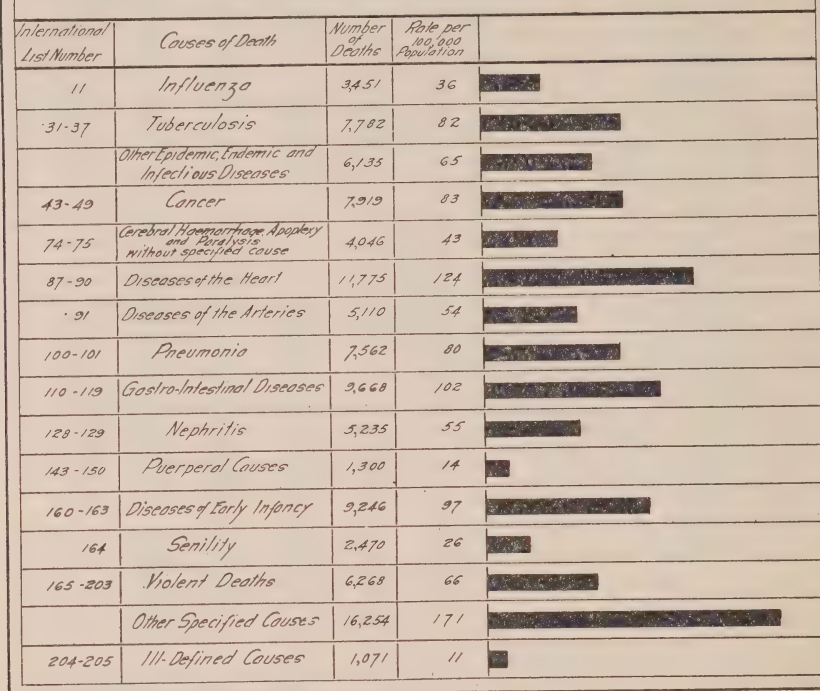 International List Number | Causes of Death | Number of Deaths | Rate per 100,000 Population
11 | Influenza | 3,451 | 36
31-37 | Tuberculosis | 7,782 | 82
Other Epidemic, Endemic and Infectious Diseases | 6,135 | 65
43-49 | Cancer | 7,919 | 83
74-75 | Cerebral Haemorrhage, Apoplexy and Paralysis without specified cause | 4,046 | 43
87-90 | Diseases of the Heart | 11,775 | 124
91 | Diseases of the Arteries | 5,110 | 54
100-101 | Pneumonia | 7,562 | 80
110-119 | Gastro-Intestinal Diseases | 9,668 | 102
128-129 | Nephritis | 5,235 | 55
143-150 | Puerperal Causes | 1,300 | 14
160-163 | Diseases of Early Infancy | 9,246 | 97
164 | Senility | 2,470 | 26
165-203 | Violent Deaths | 6,268 | 66
Other Specified Causes | 16,254 | 171
204-205 | Ill-Defined Causes | 1,071 | 11